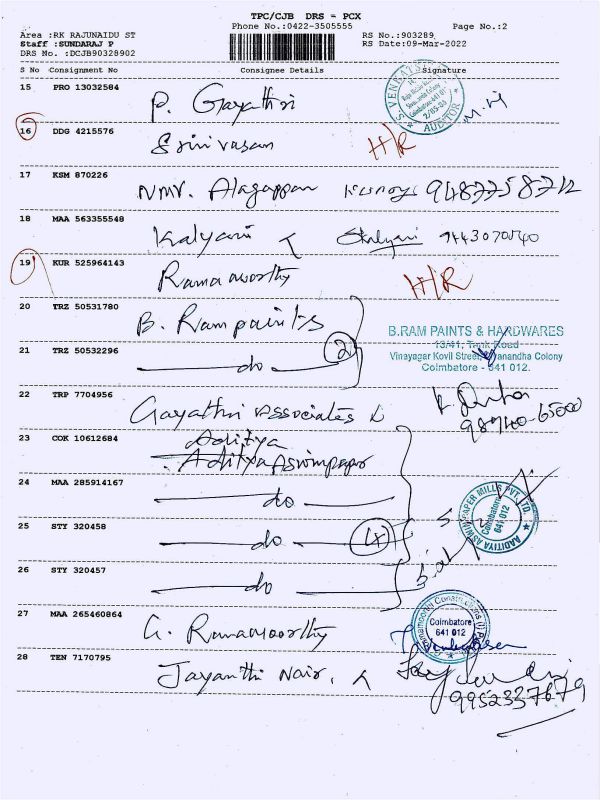 TPC/CJB DRS = PCX
Phone No.:0422-3505555 Page No.:2
Area :RK RAJUNAIDU ST RS No.:903289
Staff :SUNDARAJ P RS Date:09-Mar-2022
DRS No. :DCJB90328902
S No Consignment No Consignee Details Signature
15 PRO 13032584
P. Gayathri
S VENKATS
Coimbatore-641 0
2/05-86
AUDITOR
16 DDG 4215576
Srinivasan H/R
17 KSM 870226
NMV. Alagappan 9487758712
18 MAA 563355548
Kalyani Kalyani 9443070540
19 KUR 525964143
Ramamoorthy H/R
20 TRZ 50531780
B. Ram paints
B.RAM PAINTS & HARDWARES
13/41, Tank Road
Vinayager Kovil Street, Coimbatore - 641 012.
21 TRZ 50532296
do 2
22 TRP 7704956
Gayathri Associates
98940-65000
23 COK 10612684
Aditya
Aditya Aswinpapar
24 MAA 285914167
do
AADITIYA ASWIN PAPER MILLS PVT. LTD
Coimbatore
641 012
25 STY 320458
do (4)
26 STY 320457
do
27 MAA 265460864
G. Ramamoorthy
Coimbatore
641 012
28 TEN 7170795
Jayanthi Nair.
9952337679